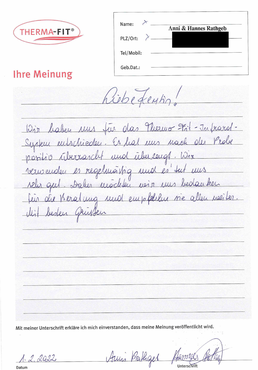 THERMA-FIT®
Name:
Anni & Hannes Rathgeb
PLZ/Ort:
Tel/Mobil:
Geb.Dat.:
Ihre Meinung
Wir haben uns für das Thermo Fit - Infrarot-
System entschieden. Es hat uns nach der Probe
positiv überrascht und überzeugt. Wir
verwenden es regelmäßig und es tut uns
sehr gut. Daher möchten wir uns bedanken
für die Beratung und empfehlen sie allen weiter.
Mit lieben Grüßen
Mit meiner Unterschrift erkläre ich mich einverstanden, dass meine Meinung veröffentlicht wird.
1.2.2022 Anni Rathgeb
Datum Unterschrift